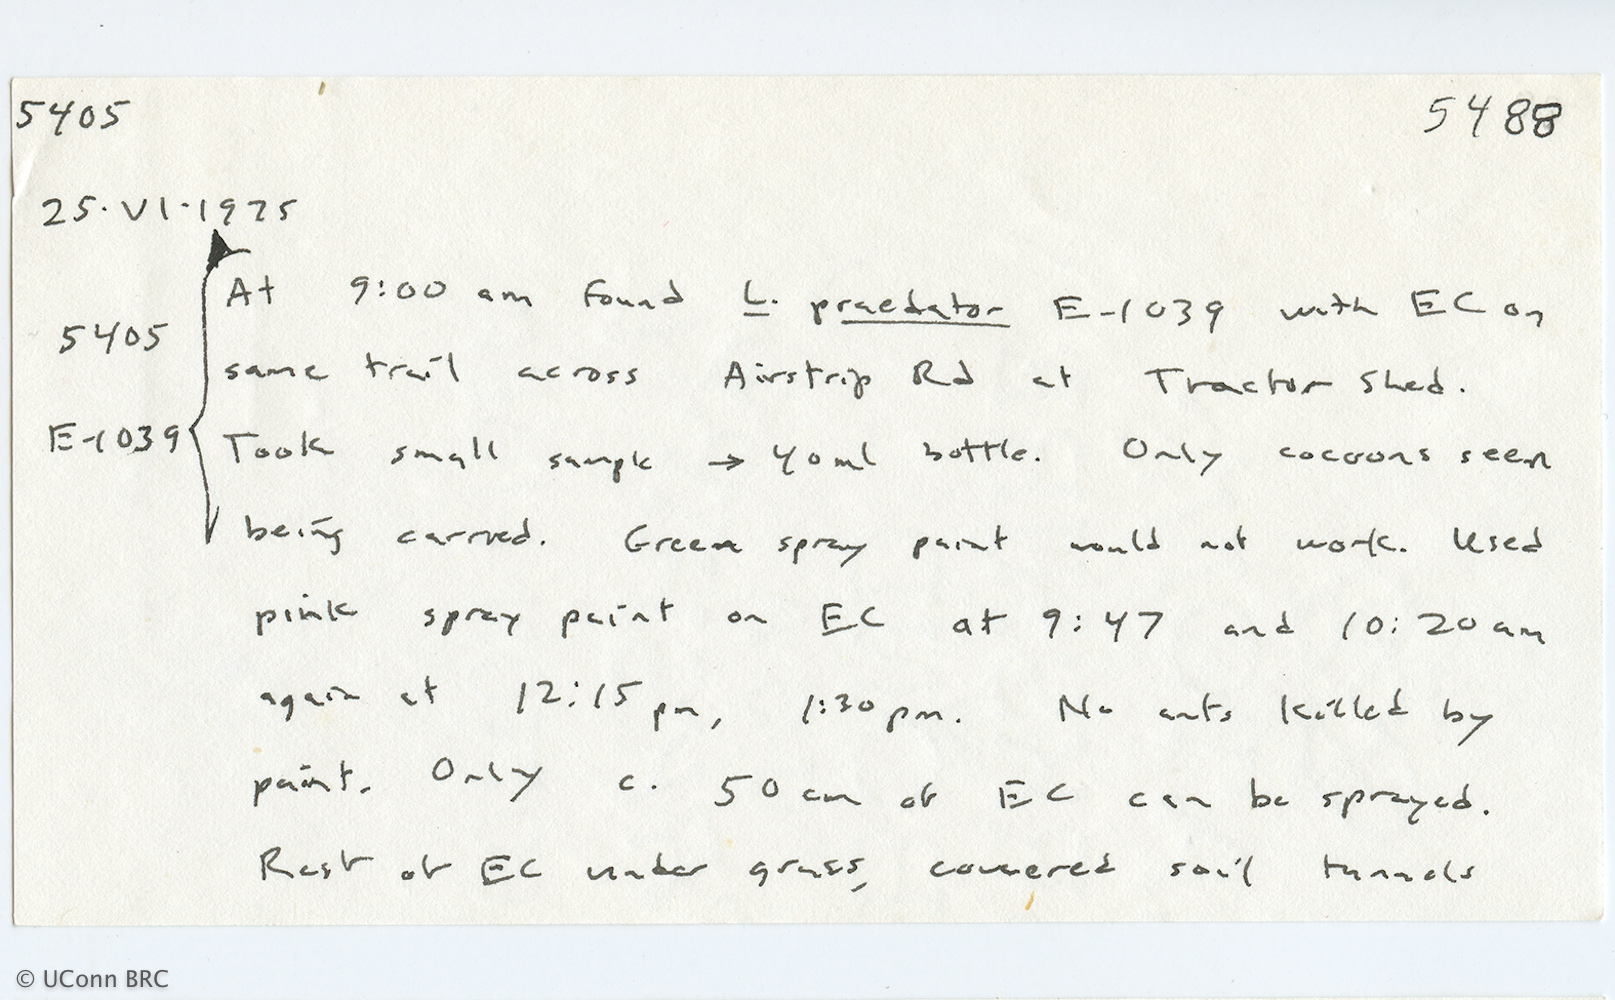 5405 5488
25·VI·1975
At 9:00 am found L. praedator E-1039 with EC on
5405
same trail across Airstrip Rd at Tractor Shed.
E-1039 Took small sample → 40ml bottle. Only cocoons seen
being carried. Green spray paint would not work. Used
pink spray paint on EC at 9:47 and 10:20 am
again at 12:15 pm, 1:30 pm. No ants killed by
paint. Only c. 50 cm of EC can be sprayed.
Rest of EC under grass, covered soil tunnels
© UConn BRC